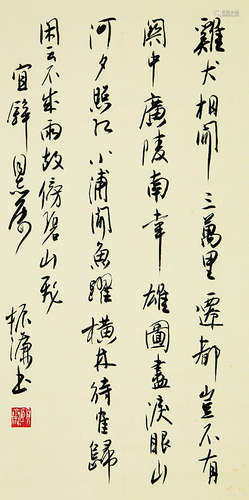 雞犬相聞三萬里遷都豈不有
關中廣陵南幸雄圖盡淚眼山
河夕照紅小浦聞魚躍橫林待鶴歸
閑云不成雨故傍碧山飛
宜 同志屬
振濂書